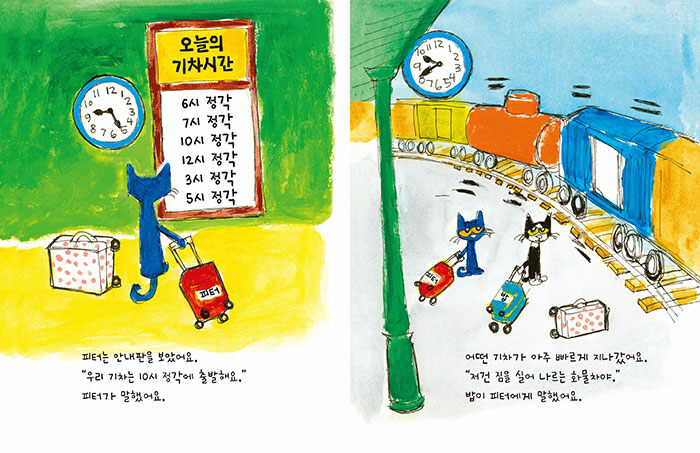 오늘의
기차시간
6시 정각
7시 정각
10시 정각
12시 정각
3시 정각
5시 정각
피터
피터는 안내판을 보았어요.
“우리 기차는 10시 정각에 출발해요.”
피터가 말했어요.
피터
밥
어떤 기차가 아주 빠르게 지나갔어요.
“저건 짐을 실어 나르는 화물차야.”
밥이 피터에게 말했어요.